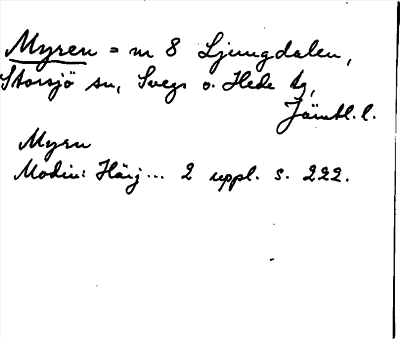 Myren = m 8 Ljungdalen,
Storsjö sn, Svegs o. Hede tg,
Jämtl. l.
Myrn
Modin: Härj... 2 uppl. s. 222.